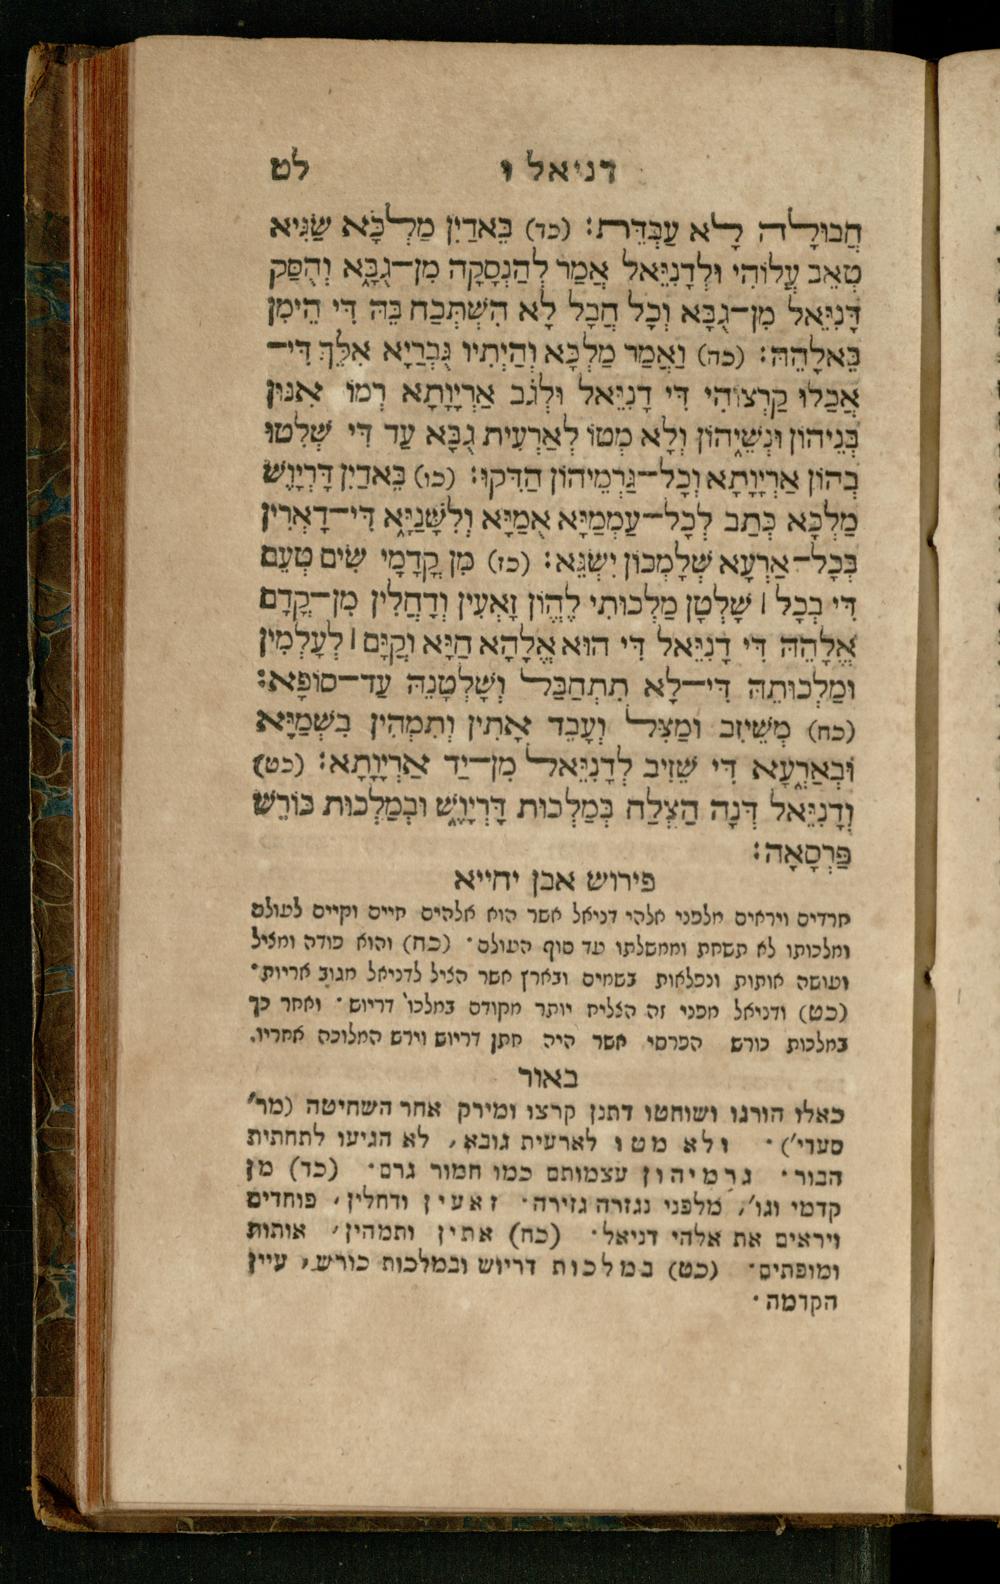 דניאל ו לט
חֲבוּלָה לָא עַבְדֵת׃ (כד) בֵּאדַיִן מַלְכָּא שַׂגִּיא
טְאֵב עֲלוֹהִי וּלְדָנִיֵּאל אֲמַר לְהַנְסָקָה מִן־גֻּבָּא וְהֻסַּק
דָּנִיֵּאל מִן־גֻּבָּא וְכָל חֲבָל לָא הִשְׁתְּכַח בֵּהּ דִּי הֵימִן
בֵּאלָהֵהּ׃ (כה) וַאֲמַר מַלְכָּא וְהַיְתִיו גֻּבְרַיָּא אִלֵּךְ דִּי־
אֲכַלוּ קַרְצוֹהִי דִּי דָנִיֵּאל וּלְגֹב אַרְיָוָתָא רְמוֹ אִנּוּן
בְּנֵיהוֹן וּנְשֵׁיהוֹן וְלָא מְטוֹ לְאַרְעִית גֻּבָּא עַד דִּי שְׁלִטוּ
בְהוֹן אַרְיָוָתָא וְכָל־גַּרְמֵיהוֹן הַדִּקוּ׃ (כו) בֵּאדַיִן דָּרְיָוֶשׁ
מַלְכָּא כְּתַב לְכָל־עַמְמַיָּא אֻמַיָּא וְלִשָּׁנַיָּא דִּי־דָאְרִין
בְּכָל־אַרְעָא שְׁלָמְכוֹן יִשְׂגֵּא׃ (כז) מִן קֳדָמָי שִׂים טְעֵם
דִּי בְּכָל ׀ שָׁלְטָן מַלְכוּתִי לֶהֱוֹן זָאְעִין וְדָחֲלִין מִן־קֳדָם
אֱלָהֵהּ דִּי דָנִיֵּאל דִּי הוּא אֱלָהָא חַיָּא וְקַיָּם ׀ לְעָלְמִין
וּמַלְכוּתֵהּ דִּי־לָא תִתְחַבַּל וְשָׁלְטָנֵהּ עַד־סוֹפָא׃
(כח) מְשֵׁיזִב וּמַצִּל וְעָבֵד אָתִין וְתִמְהִין בִּשְׁמַיָּא
וּבְאַרְעָא דִּי שֵׁזִיב לְדָנִיֵּאל מִן־יַד אַרְיָוָתָא׃ (כט)
וְדָנִיֵּאל דְּנָה הַצְלַח בְּמַלְכוּת דָּרְיָוֶשׁ וּבְמַלְכוּת כּוֹרֵשׁ
פַּרְסָאָה׃
פירוש אבן יחייא
חרדים ויראים מלפני אלהי דניאל אשר הוא אלהים חיים וקיים לעולם
ומלכותו לא תשחת וממשלתו עד סוף העולם · (כח) והוא פודה ומציל
ועושה אותות ונפלאות בשמים ובארץ אשר הציל לדניאל מגוב אריות·
(כט) ודניאל מפני זה הצליח יותר מקודם במלכו' דריוש · ואחר כך
במלכות כורש הפרסי אשר היה חתן דריוש וירש המלוכה אחריו.
באור
כאלו הורגו ושוחטו דתנן קרצו ומירק אחר השחיטה (מר'
סעדי')· ולא מטו לארעית גובא, לא הגיעו לתחתית
הבור· גרמיהון עצמותם כמו חמור גרם· (כד) מן
קדמי וגו', מלפני נגזרה גזירה· זאעין ודחלין, פוחדים
ויראים את אלהי דניאל· (כח) אתין ותמהין, אותות
ומופתים· (כט) במלכות דריוש ובמלכות כורש, עיין
הקדמה·